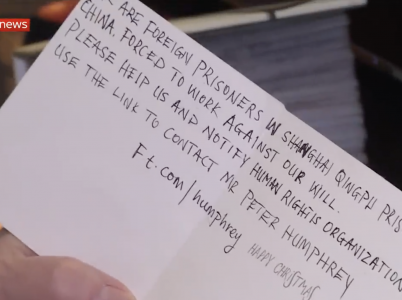 news
ARE FOREIGN PRISONERS IN SHANGHAI QINGPU PRIS
CHINA. FORCED TO WORK AGAINST OUR WILL.
PLEASE HElP US AND NOTIFY HUMAN RIGHTS ORGANIZATION
USE THE LINK TO CONTACT MR PETER HUMPHREY
Ft.com/humphrey
HAPPY CHRISTMAS